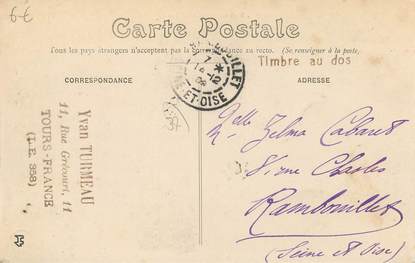 6€
Carte Postale
Tous les pays étrangers n'acceptent pas la correspondance au recto. (Se renseigner à la poste)
Timbre au dos
CORRESPONDANCE
ADRESSE
ET-OISE
Yvan TURMEAU
11, Rue Grécourt, 11
TOURS-FRANCE
(I.E. 358)
Melle Zelma Cabaret
8, rue Chasles
Rambouillet
(Seine et Oise)